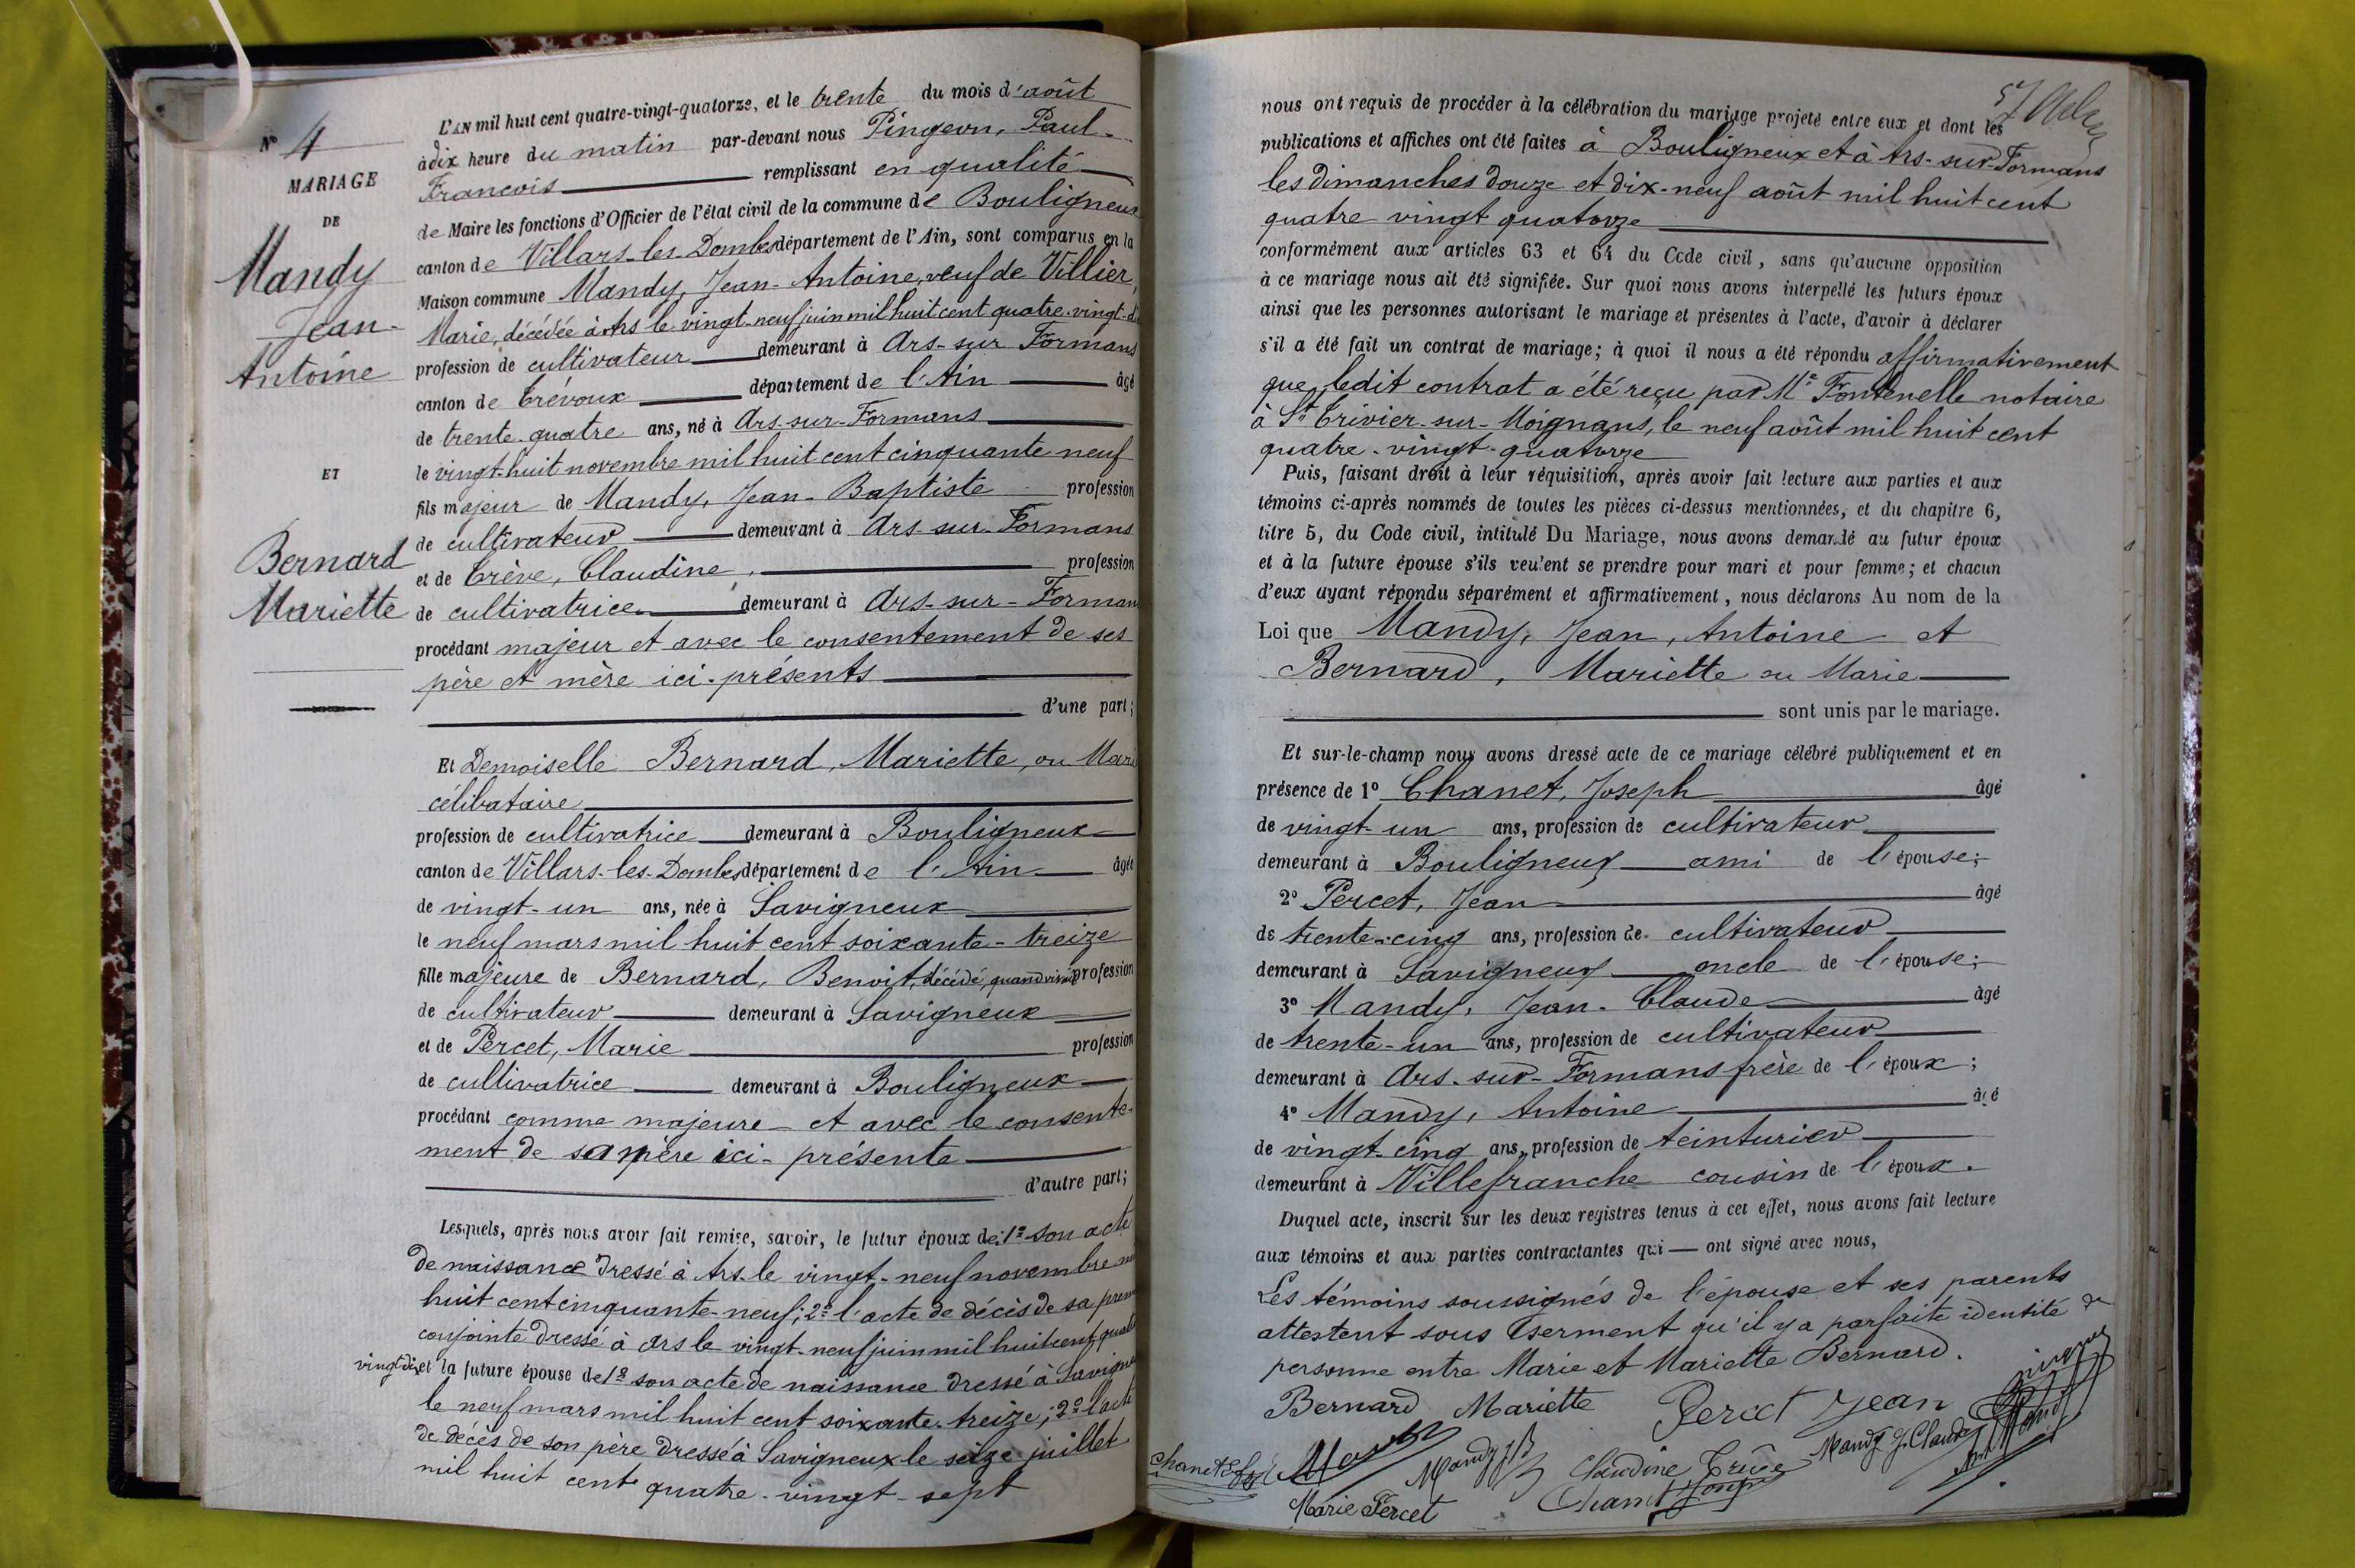 N° 4
MARIAGE
DE
Mandy
Jean-
Antoine
ET
Bernard
Mariette
L'AN mil huit cent quatre-vingt-quatorze, et le trente du mois d'août
à dix heure du matin par-devant nous Pingeon, Paul-
François remplissant en qualité
de Maire les fonctions d'Officier de l'état civil de la commune de Bouligneux
canton de Villars-les-Dombes département de l'Ain, sont comparus en la
Maison commune Mandy, Jean-Antoine, veuf de Villier,
Marie, décédée à Ars le vingt-neuf juin mil huit cent quatre-vingt-di
profession de cultivateur demeurant à Ars-sur Formans
canton de Trévoux département de l'Ain âgé
de trente-quatre ans, né à Ars-sur-Formans
le vingt-huit novembre mil huit cent cinquante neuf
fils majeur de Mandy, Jean-Baptiste profession
de cultivateur demeurant à Ars-sur-Formans
et de Crève, Claudine, profession
de cultivatrice demeurant à Ars-sur-Forman
procédant majeur et avec le consentement de ses
père et mère ici-présents
d'une part;
Et Demoiselle Bernard, Mariette, ou Mari
célibataire
profession de cultivatrice demeurant à Bouligneux
canton de Villars-les-Dombes département de l'Ain âgée
de vingt-un ans, née à Savigneux
le neuf mars mil huit cent soixante-treize
fille majeure de Bernard, Benoit, décédé, quand vivait profession
de cultivateur demeurant à Savigneux
et de Percet, Marie profession
de cultivatrice demeurant à Bouligneux
procédant comme majeure et avec le consente-
ment de sa mère ici-présente
d'autre part;
Lesquels, après nous avoir fait remise, savoir, le futur époux de: 1° son acte
de naissance dressé à Ars le vingt-neuf novembre mi
huit cent cinquante-neuf; 2° l'acte de décès de sa prem
conjointe dressé à Ars le vingt-neuf juin mil huit cent quatre
vingt dix et la future épouse de 1° son acte de naissance dressé à Savigne
le neuf mars mil huit cent soixante-treize; 2° l'acte
de décès de son père dressé à Savigneux le seize juillet
mil huit cent quatre-vingt-sept
nous ont requis de procéder à la célébration du mariage projeté entre eux et dont les
publications et affiches ont été faites à Bouligneux et à Ars-sur-Formans
les dimanches douze et dix-neuf août mil huit cent
quatre vingt quatorze
conformément aux articles 63 et 64 du Code civil, sans qu'aucune opposition
à ce mariage nous ait été signifiée. Sur quoi nous avons interpellé les futurs époux
ainsi que les personnes autorisant le mariage et présentes à l'acte, d'avoir à déclarer
s'il a été fait un contrat de mariage; à quoi il nous a été répondu affirmativement
que ledit contrat a été reçu par Me Fontenelle notaire
à St Trivier-sur-Moignans, le neuf août mil huit cent
quatre-vingt-quatorze
Puis, faisant droit à leur réquisition, après avoir fait lecture aux parties et aux
témoins ci-après nommés de toutes les pièces ci-dessus mentionnées, et du chapitre 6,
titre 5, du Code civil, intitulé Du Mariage, nous avons demandé au futur époux
et à la future épouse s'ils veulent se prendre pour mari et pour femme; et chacun
d'eux ayant répondu séparément et affirmativement, nous déclarons Au nom de la
Loi que Mandy, Jean, Antoine et
Bernard, Mariette ou Marie
sont unis par le mariage.
Et sur-le-champ nous avons dressé acte de ce mariage célébré publiquement et en
présence de 1° Chanet, Joseph âgé
de vingt-un ans, profession de cultivateur
demeurant à Bouligneux ami de l'épouse;
2° Percet, Jean âgé
de trente-cinq ans, profession de cultivateur
demeurant à Savigneux oncle de l'épouse;
3° Mandy, Jean-Claude âgé
de trente-un ans, profession de cultivateur
demeurant à Ars-sur-Formans frère de l'époux;
4° Mandy, Antoine âgé
de vingt-cinq ans, profession de teinturier
demeurant à Villefranche cousin de l'époux.
Duquel acte, inscrit sur les deux registres tenus à cet effet, nous avons fait lecture
aux témoins et aux parties contractantes qui — ont signé avec nous,
Les témoins soussignés de l'épouse et ses parents
attestent sous serment qu'il y a parfaite identité de
personne entre Marie et Mariette Bernard.
Bernard Mariette Percet Jean
Mandy Mandy JB Claudine Crève Mandy J. Claude
Marie Percet Chanet Joseph